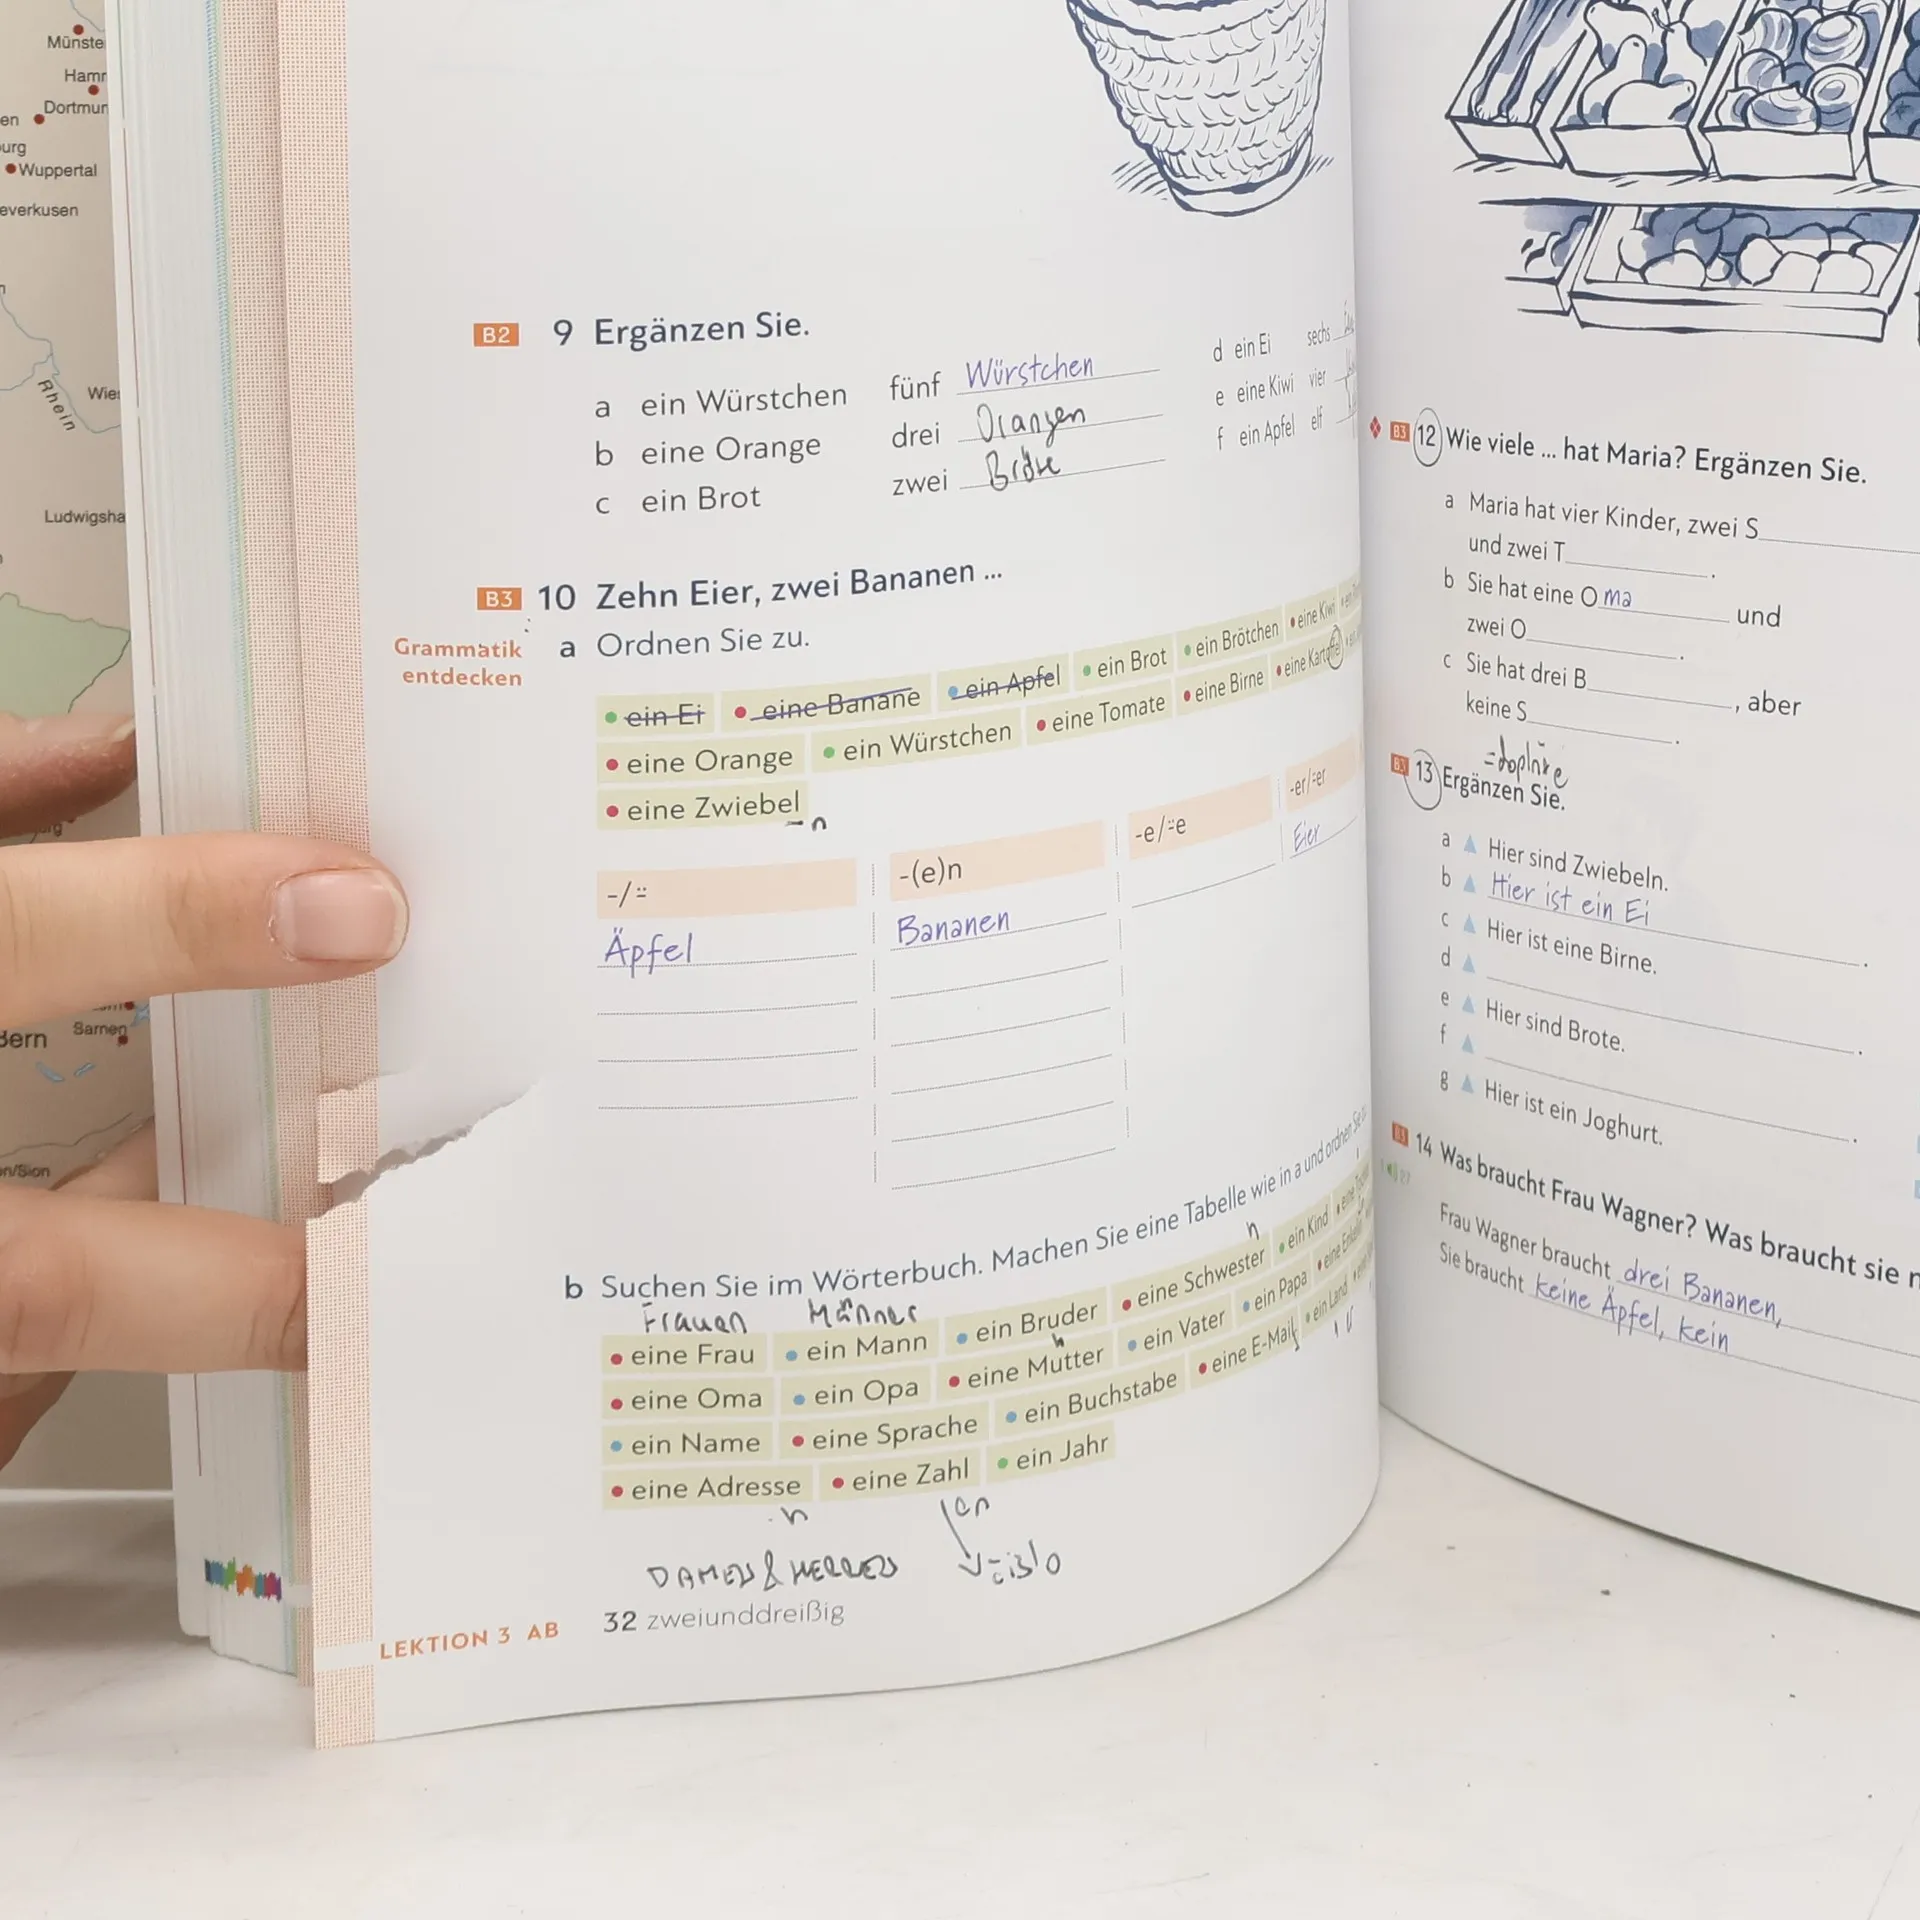 Münste
Hamr
Dortmur
en
urg
Wuppertal
everkusen
Rhein
Wies
Ludwigsha
Bern
Sarnen
n/Sion
B2 9 Ergänzen Sie.
a ein Würstchen fünf Würstchen
b eine Orange drei Orangen
c ein Brot zwei Bröte
d ein Ei sechs
e eine Kiwi vier
f ein Apfel elf
B3 10 Zehn Eier, zwei Bananen ...
Grammatik
entdecken
a Ordnen Sie zu.
ein Ei eine Banane ein Apfel ein Brot ein Brötchen eine Kiwi
eine Orange ein Würstchen eine Tomate eine Birne eine Kartoffel
eine Zwiebel
-n
-/¨ -(e)n -e/¨e -er/¨er
Äpfel Bananen Eier
b Suchen Sie im Wörterbuch. Machen Sie eine Tabelle wie in a und ordnen Sie zu
Frauen Männer n
eine Frau ein Mann ein Bruder eine Schwester ein Kind
n
eine Oma ein Opa eine Mutter ein Vater ein Papa
ein Name eine Sprache ein Buchstabe eine E-Mail ein Land
eine Adresse eine Zahl ein Jahr
n en
DAMEN & HERREN =číslo
LEKTION 3 AB 32 zweiunddreißig
B3 12 Wie viele ... hat Maria? Ergänzen Sie.
a Maria hat vier Kinder, zwei S
und zwei T .
b Sie hat eine Oma und
zwei O .
c Sie hat drei B , aber
keine S .
=doplňte
B3 13 Ergänzen Sie.
a Hier sind Zwiebeln.
b Hier ist ein Ei .
c Hier ist eine Birne.
d .
e Hier sind Brote.
f .
g Hier ist ein Joghurt.
B3 14 Was braucht Frau Wagner? Was braucht sie
27
Frau Wagner braucht drei Bananen,
Sie braucht keine Äpfel, kein